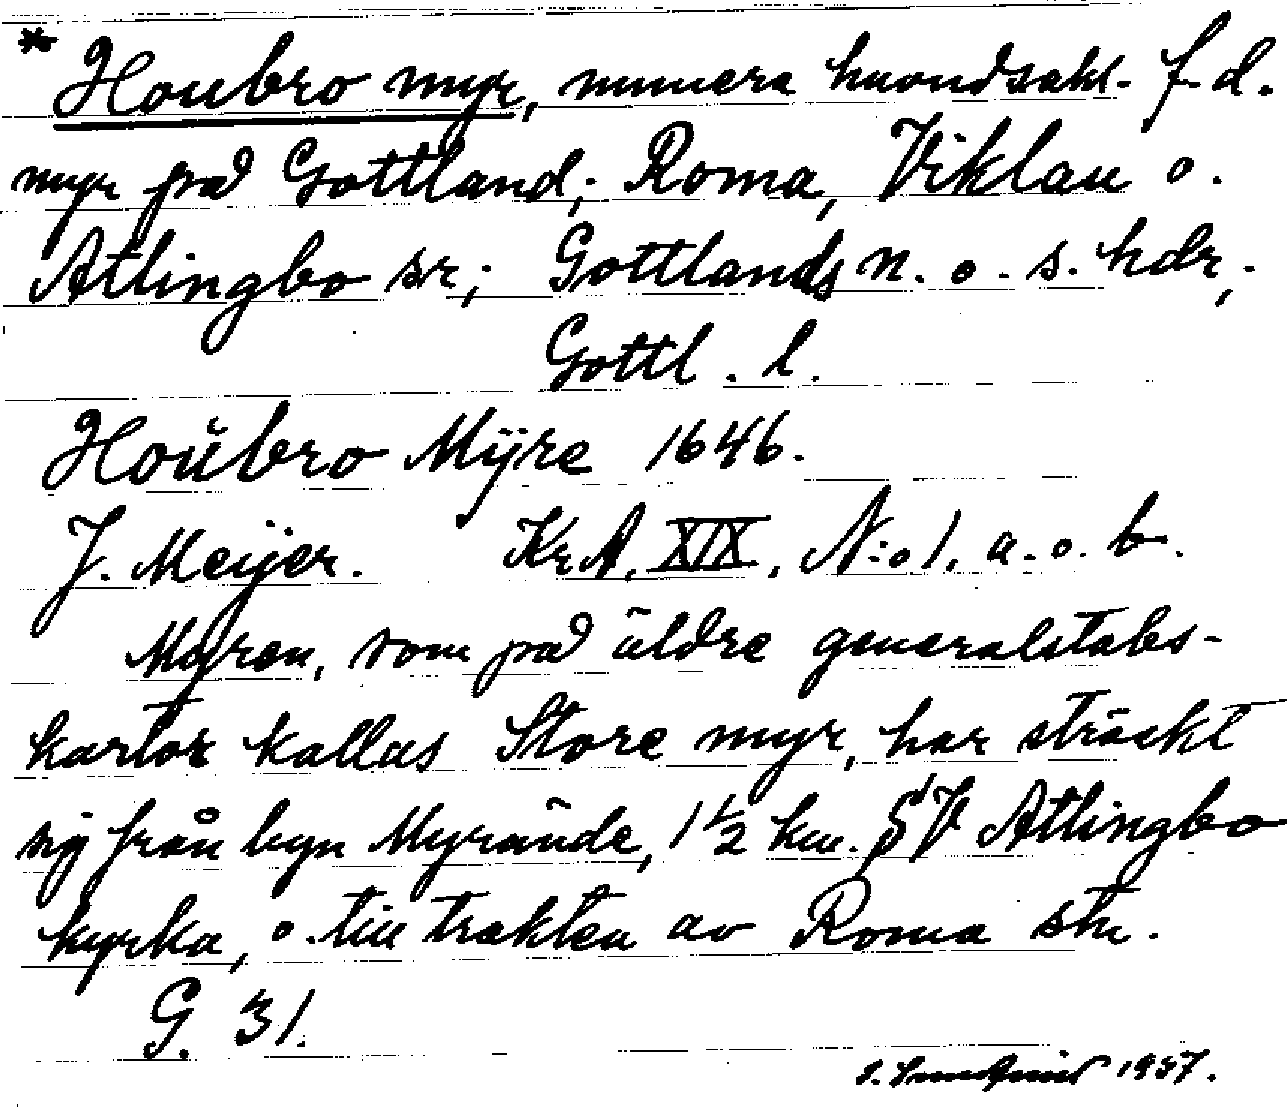 * Houbro myr, numera huvudsakl. f.d.
myr på Gottland; Roma, Viklau o.
Atlingbo sr; Gottlands n. o. s. hdr,
Gottl. l.
Hoŭbro Mÿre 1646.
J. Meijer. KrA. XIX, N:o 1. a. o. b.
Myren, som på äldre generalstabs-
kartor kallas Store myr, har sträckt
sig från byn Myrände, 1 1/2 km. SV Atlingbo
kyrka, o. till trakten av Roma stn.
G. 31.
1937.